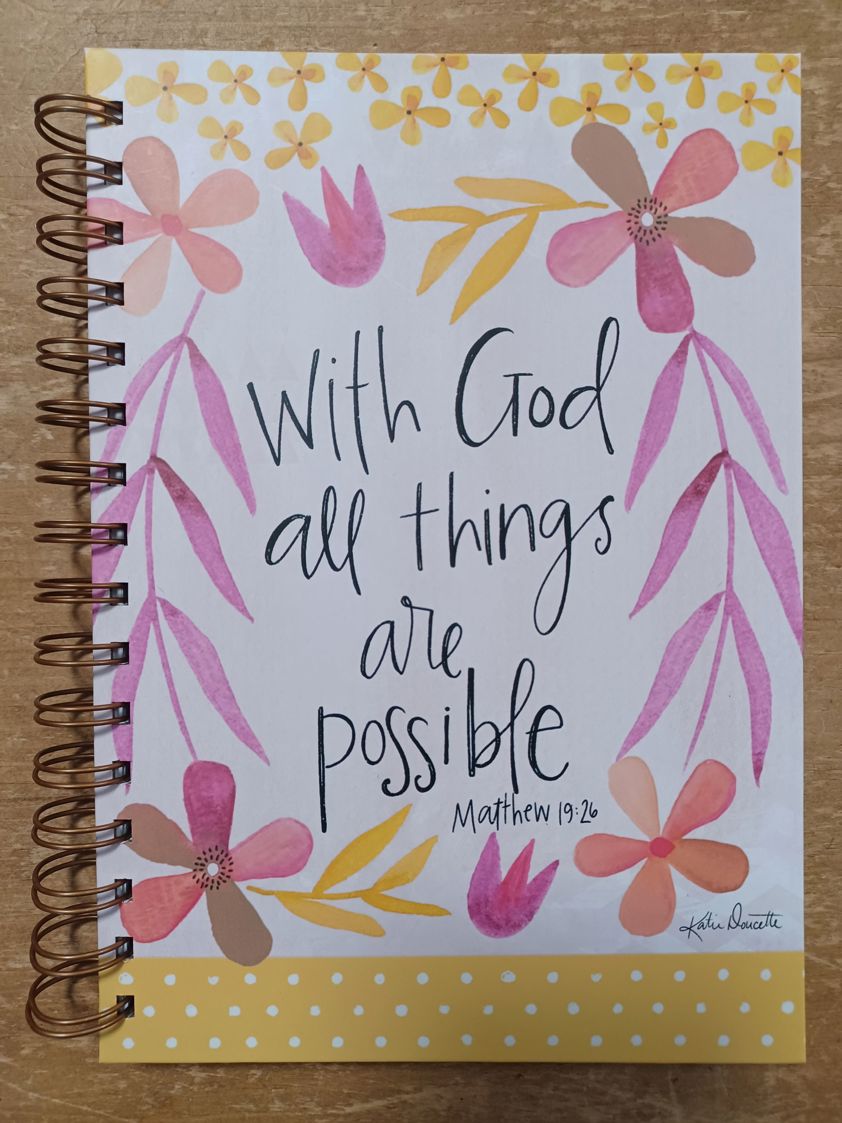 With God
all things
are
possible
Matthew 19:26
Katie Doucette